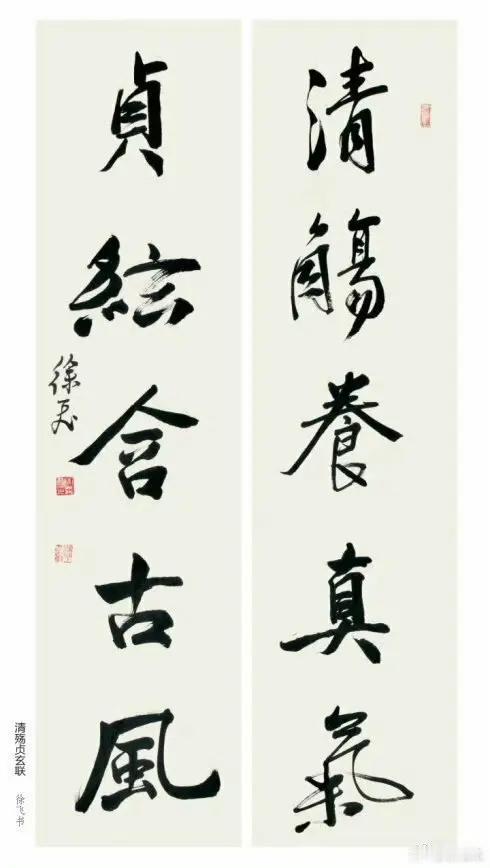 清觴養真氣
貞絃含古風
徐飞
清殇贞玄联
徐飞书